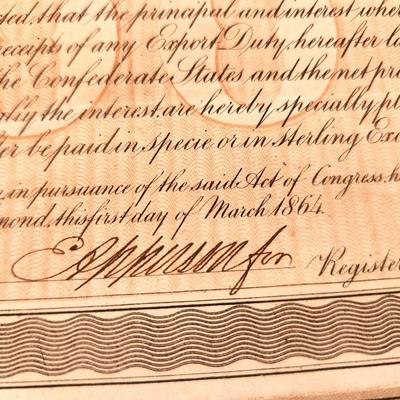 that the principal and interest
receipts of any Export Duty hereafter
the Confederate States, and the net
the interest, are hereby specially
be paid in specie or in sterling
in pursuance of the said Act of Congress,
this first day of March 1864.
Apperson for Register